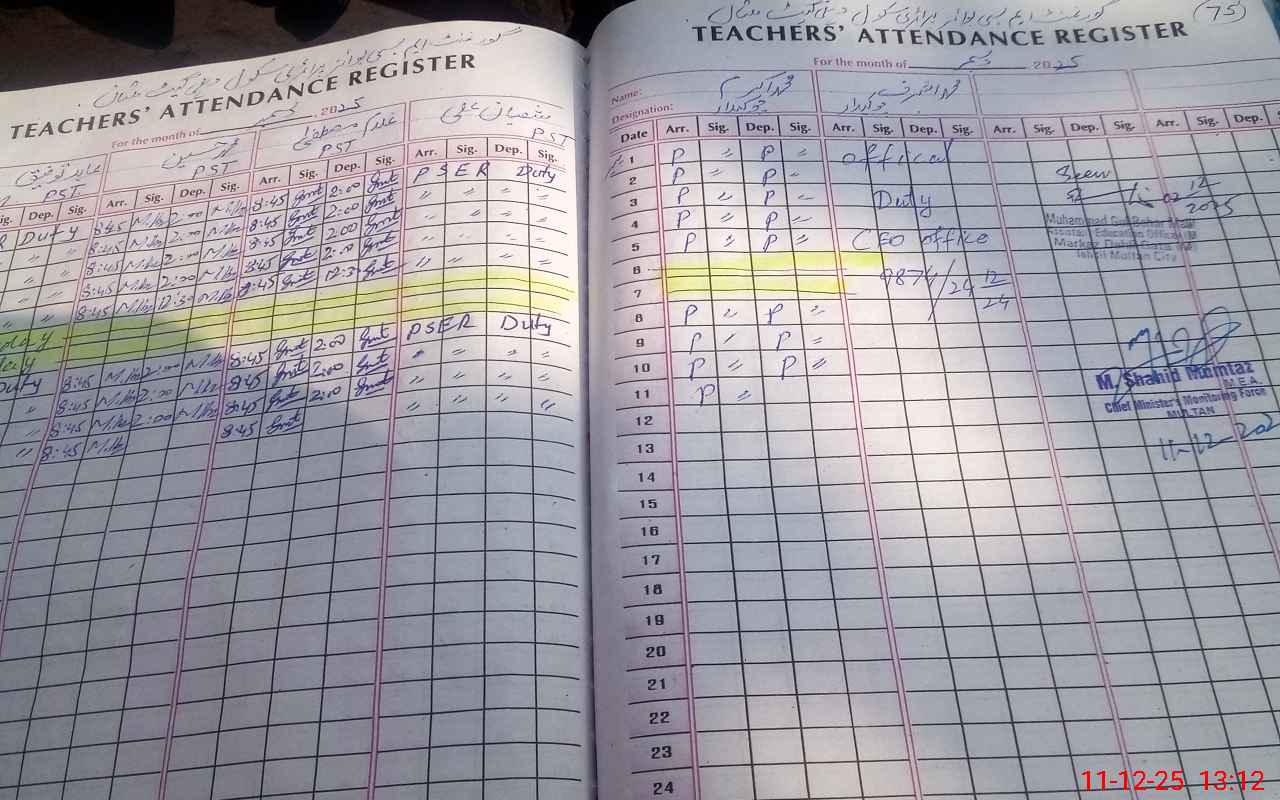 گورنمنٹ ایم سی بوائز پرائمری سکول دہلی گیٹ ملتان
TEACHERS' ATTENDANCE REGISTER
For the month of دسمبر 2025
محمد حسین غلام مصطفیٰ شعبان علی
PST PST PST PST
Sig. Dep. Sig. Arr. Sig. Dep. Sig. Arr. Sig. Dep. Sig. Arr. Sig. Dep. Sig.
Duty 8:45 2:00 8:45 2:00 PSER Duty
8:45 2:00 8:45 2:00 " " " "
8:45 2:00 8:45 2:00 " " " "
8:45 2:00 8:45 2:00 " " " "
8:45 12:30 8:45 12:30 " " " "
Duty 8:45 2:00 8:45 2:00 PSER Duty
" 8:45 2:00 8:45 2:00 " " " "
" 8:45 2:00 8:45 2:00 " " " "
" 8:45 8:45 " " " "
گورنمنٹ ایم سی بوائز پرائمری سکول دہلی گیٹ ملتان
75
TEACHERS' ATTENDANCE REGISTER
For the month of دسمبر 2025
Name: محمد اکرم محمد اشرف
Designation: چوکیدار چوکیدار
Date Arr. Sig. Dep. Sig. Arr. Sig. Dep. Sig. Arr. Sig. Dep. Sig. Arr. Sig. Dep.
1 P " P " offical
2 P " P " Seen
3 P " P " Duty
4 P " P "
5 P " P " CEO office
6
7 9874/24 12/24
8 P " P "
9 P " P "
10 P " P "
11 P "
12
13
14
15
16
17
18
19
20
21
22
23
24
02 12 2025
Muhammad
Assistant Education Officer
Markaz
Tehsil Multan City
M. Shahid Mumtaz
M.E.A.
Chief Minister's Monitoring Force
MULTAN
11-12-202
11-12-25 13:12